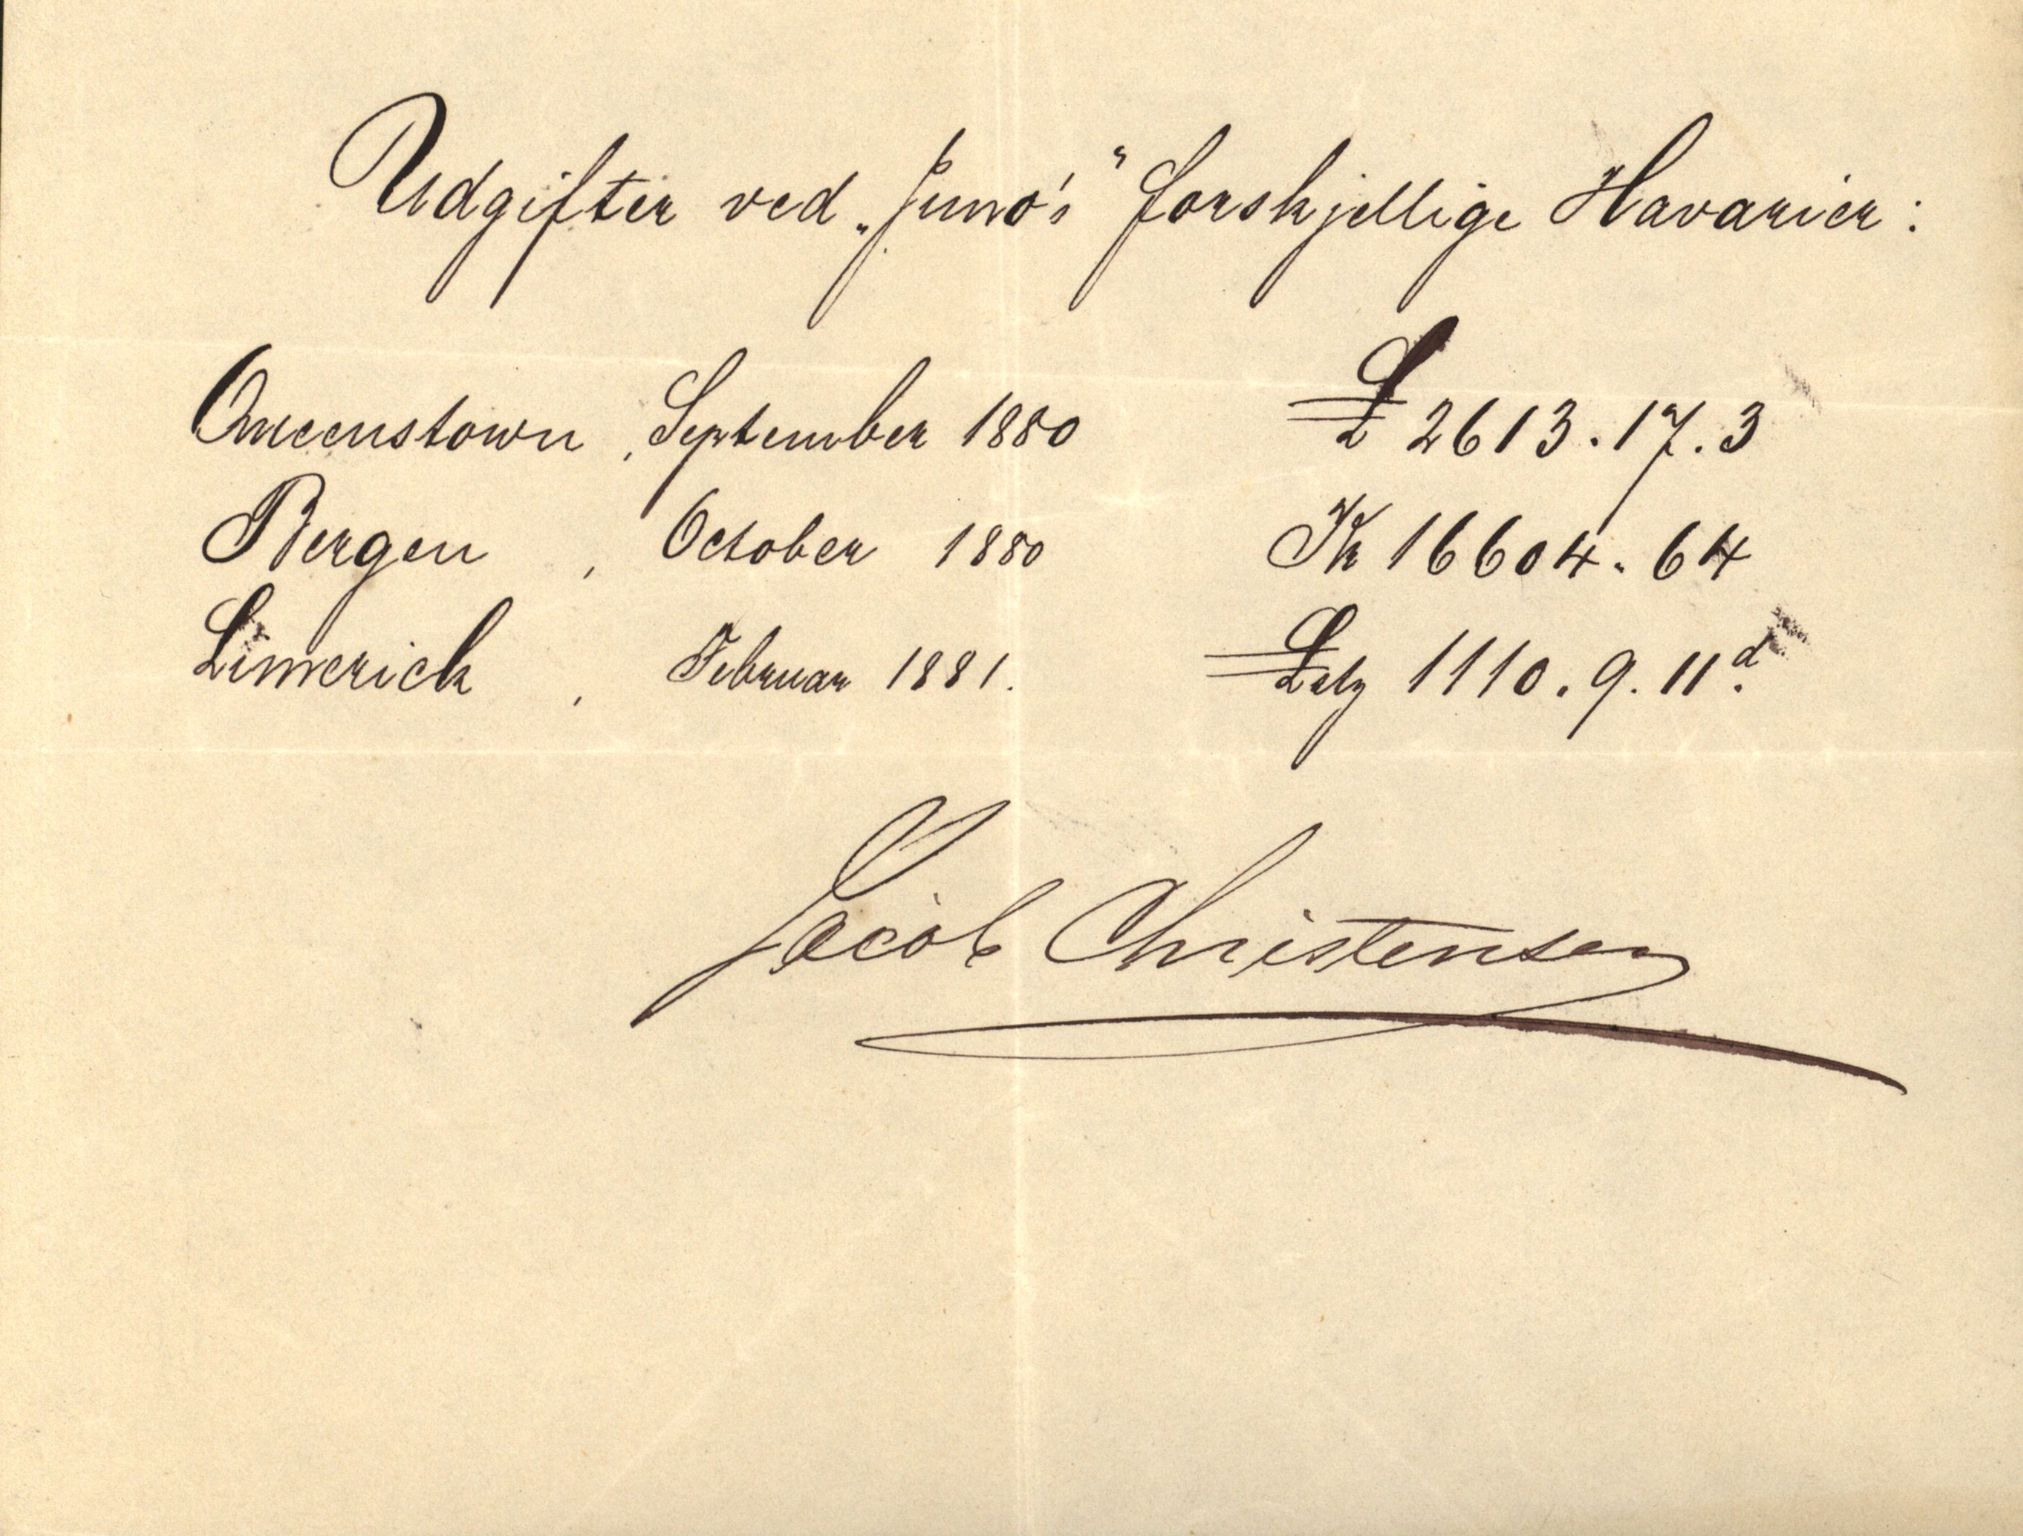 Udgifter ved „Juno's“ forskjellige Havarier:
Queenstown, September 1880 £ 2613.17.3
Bergen, October 1880 Kr 16604.64
Limerick, Februar 1881. £stg 1110.9.11d.
Jacob Christensen